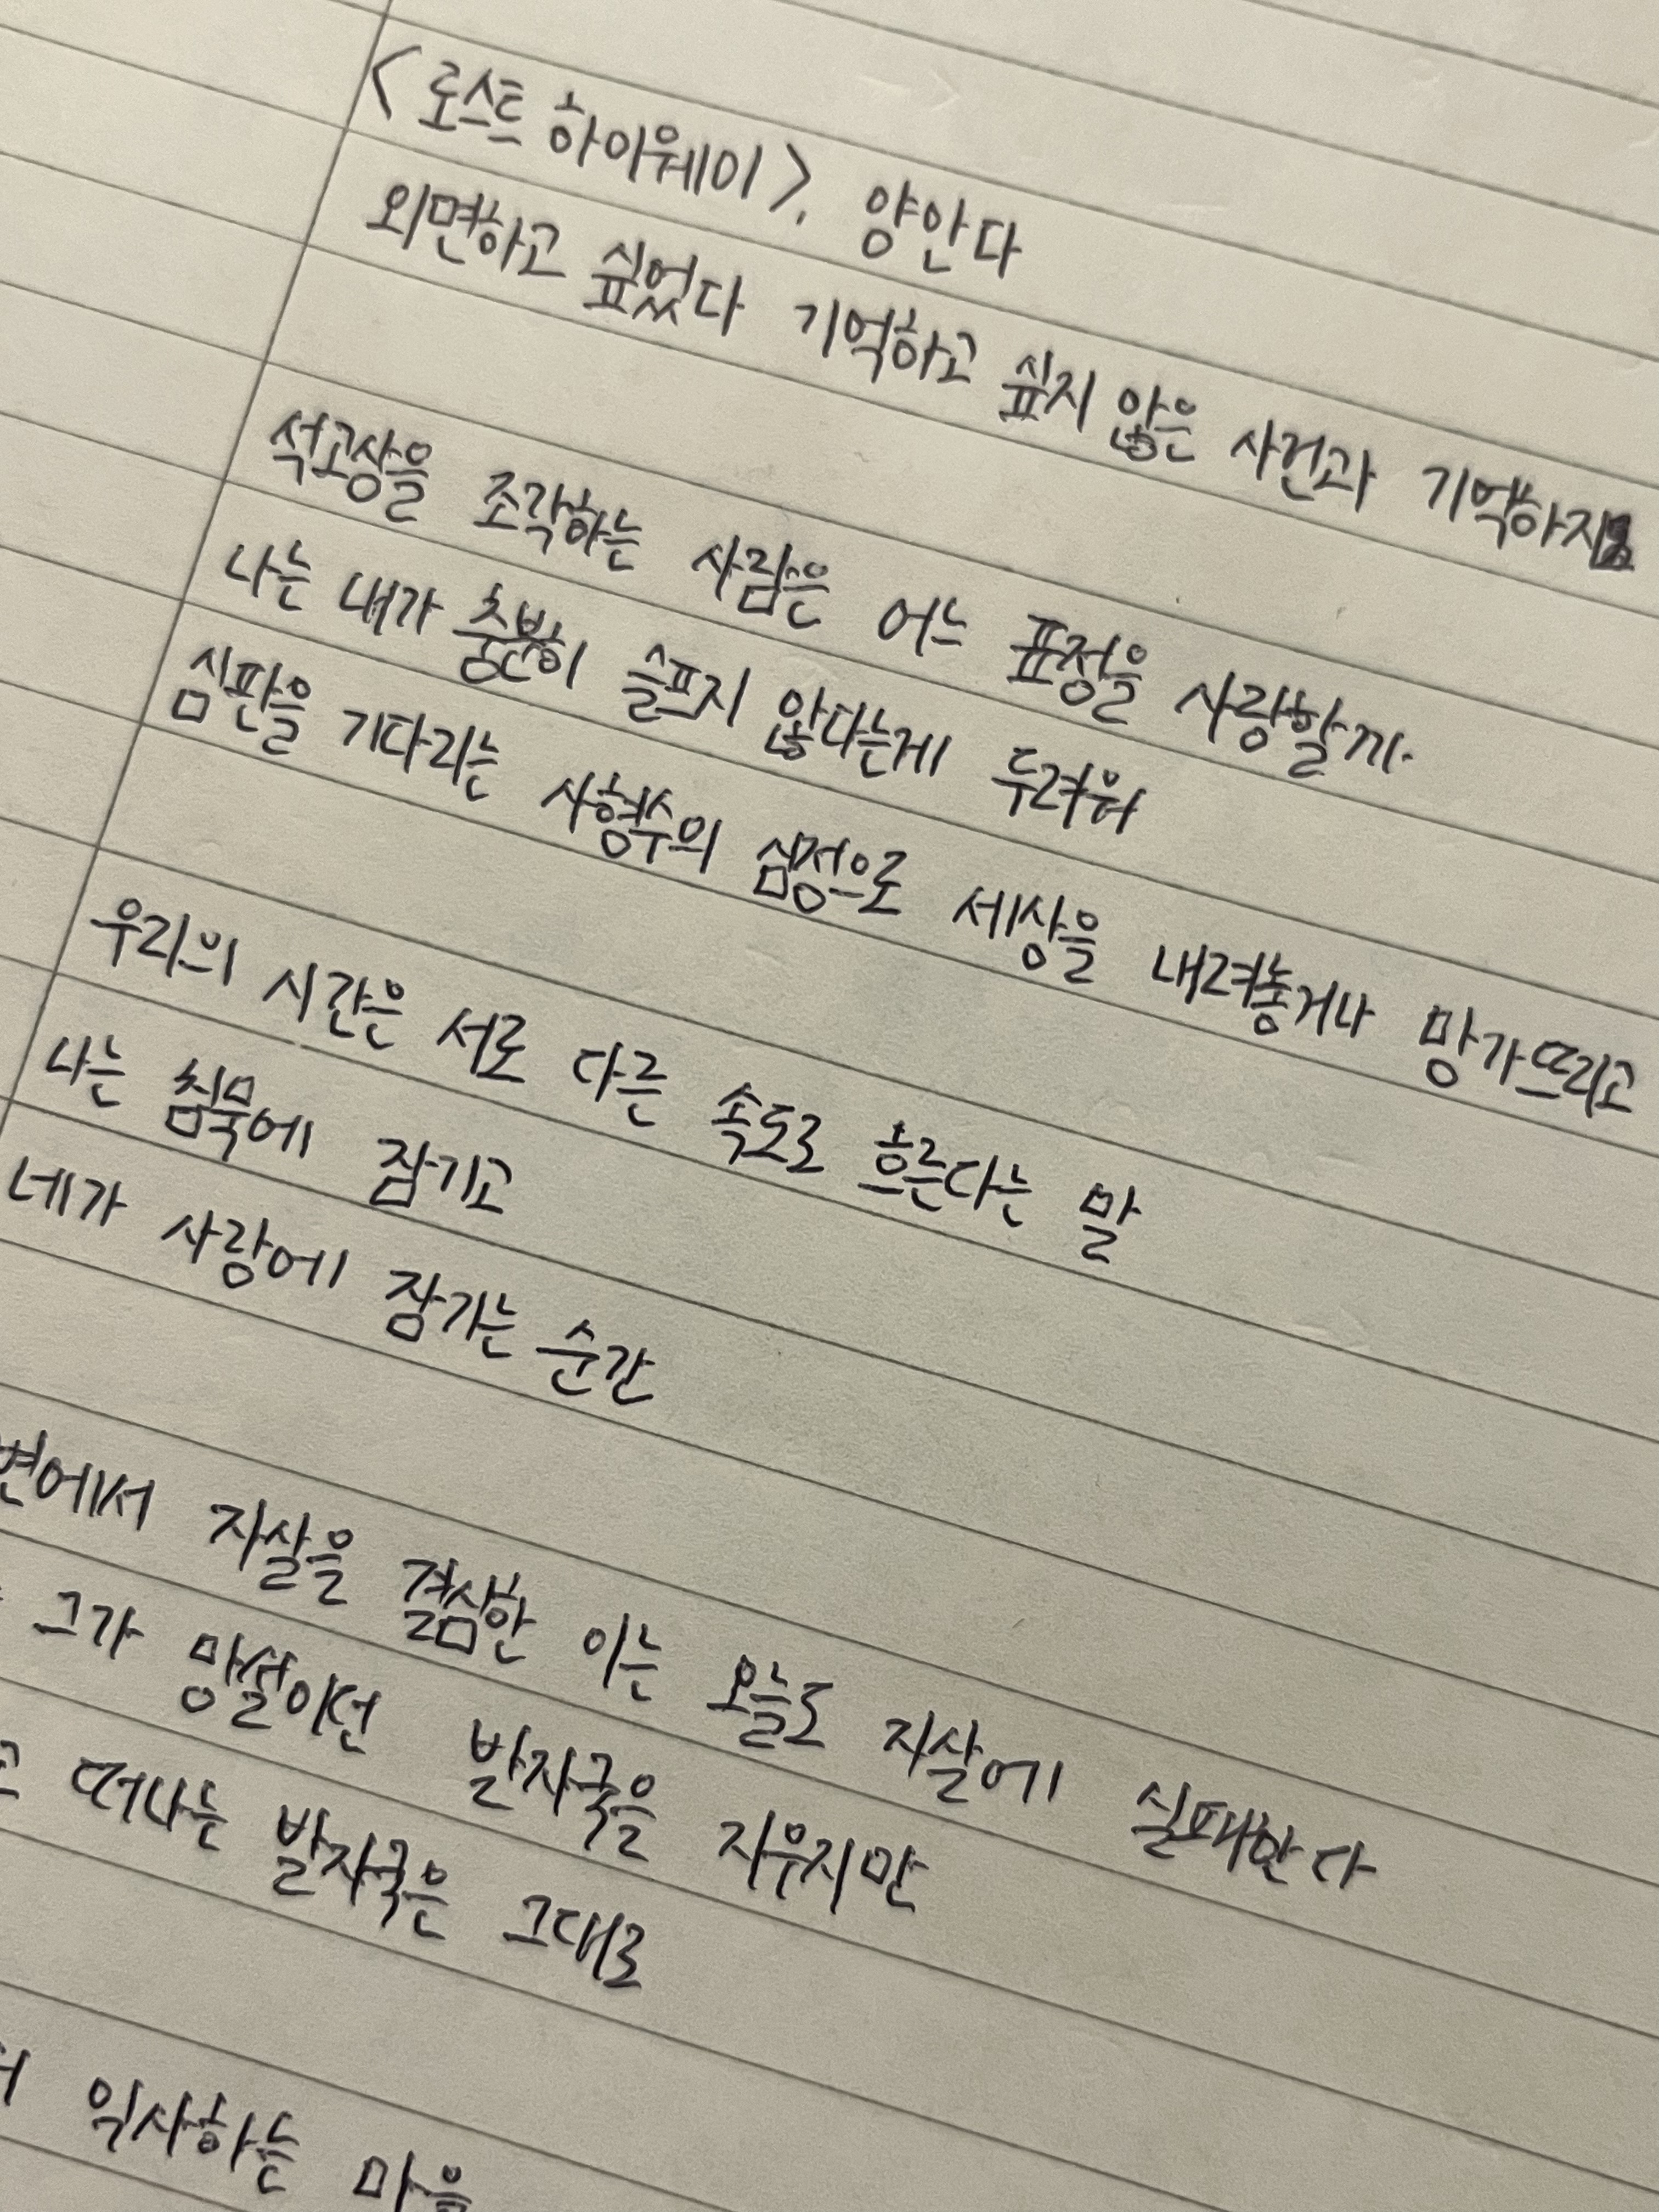 <로스트 하이웨이>, 양안다
외면하고 싶었다 기억하고 싶지 않은 사건과 기억하지
석고상을 조각하는 사람은 어느 표정을 사랑할까.
나는 내가 충분히 슬프지 않다는게 두려워
심판을 기다리는 사형수의 심정으로 세상을 내려놓거나 망가뜨리고
우리의 시간은 서로 다른 속도로 흐른다는 말
나는 침묵에 잠기고
네가 사랑에 잠기는 순간
변에서 자살을 결심한 이는 오늘도 자살에 실패한다
그가 망설이던 발자국을 지우지만
고 떠나는 발자국은 그대로
익사하는 마음